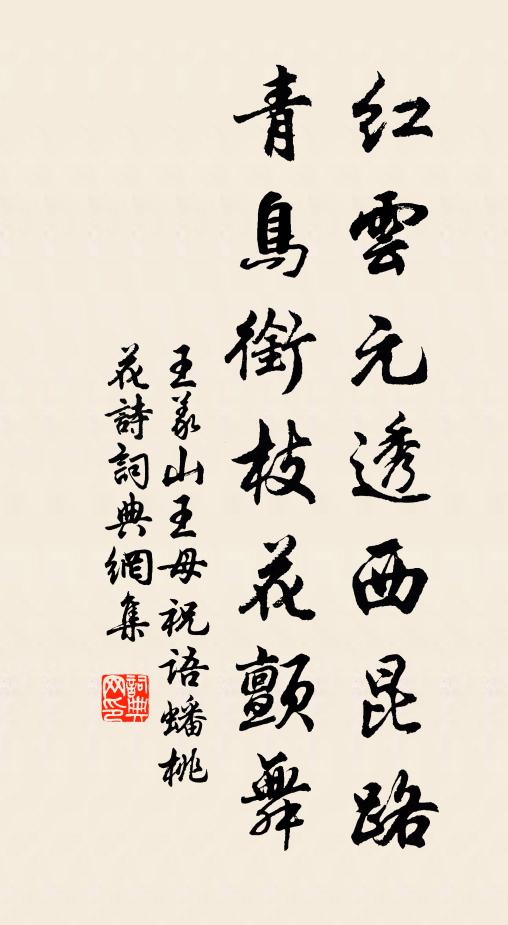 紅雲元透西昆路
青鳥銜枝花顫舞
王義山王母祝語蟠桃
花詩詞典網集
詞典
网印